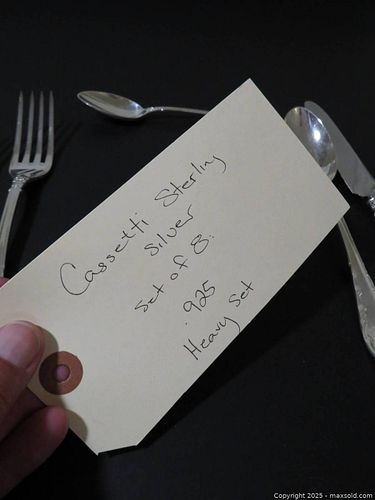 Cassetti Sterling
Silver
Set of 8:
.925
Heavy Set
Copyright 2025 - maxsold.com